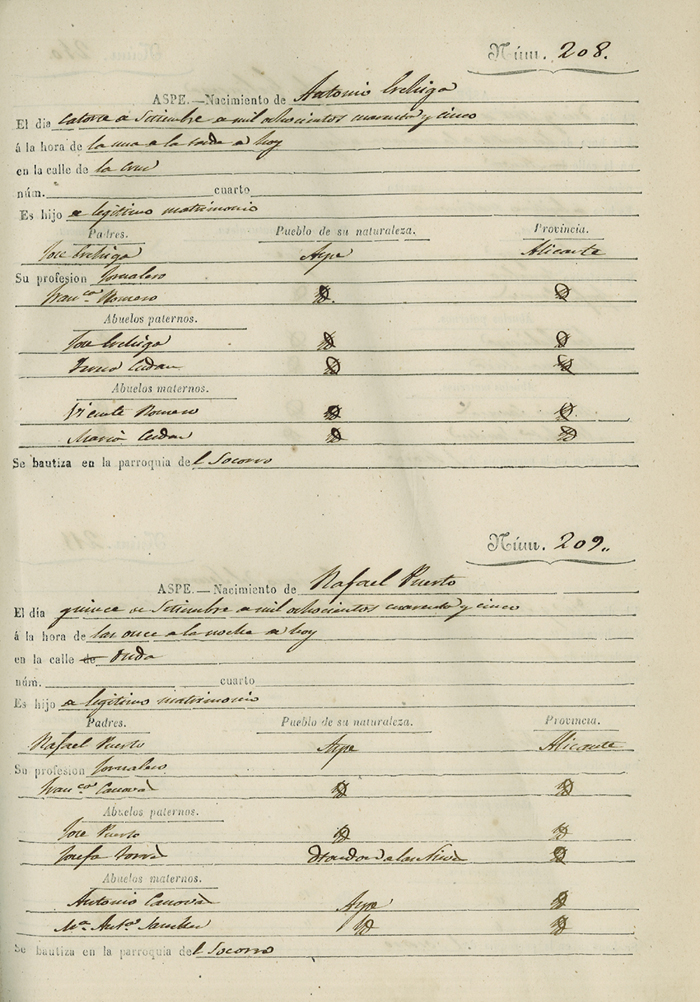 Núm. 208.
ASPE.—Nacimiento de Antonio
El dia catorce de Setiembre de mil ochocientos cuarenta y cinco
á la hora de la una de la tarde de hoy
en la calle de la Cruz
núm. cuarto
Es hijo de legitimo matrimonio
Padres. Pueblo de su naturaleza. Provincia.
Jose Aspe Alicante
Su profesion Jornalero
Franca Romero Yd. Yd
Abuelos paternos.
Jose Yd Yd
Yd Yd
Abuelos maternos.
Vicente Romero Yd Yd
Maria Yd Yd
Se bautiza en la parroquia del Socorro
Núm. 209..
ASPE.—Nacimiento de Rafael Puerto
El dia quince de Setiembre de mil ochocientos cuarenta y cinco
á la hora de las once de la noche de hoy
en la calle de Onda
núm. cuarto
Es hijo de legitimo matrimonio
Padres. Pueblo de su naturaleza. Provincia.
Rafael Puerto Aspe Alicante
Su profesion Jornalero
Franca Canovas Yd Yd
Abuelos paternos.
Jose Puerto Yd Yd
Josefa de las Yd
Abuelos maternos.
Antonio Canovas Aspe Yd
Ma Anta Sanchez Yd Yd
Se bautiza en la parroquia del Socorro